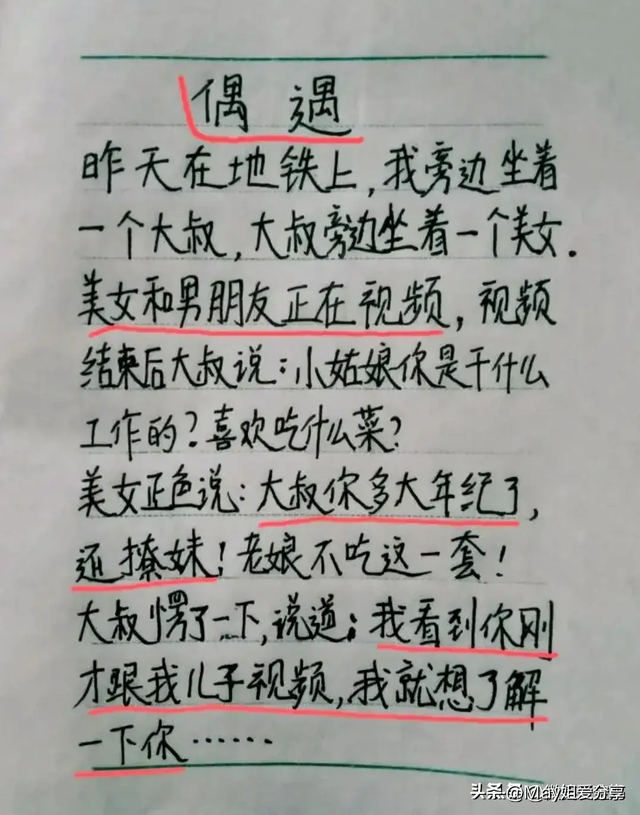 偶遇
昨天在地铁上,我旁边坐着
一个大叔,大叔旁边坐着一个美女.
美女和男朋友正在视频,视频
结束后大叔说:小姑娘你是干什么
工作的?喜欢吃什么菜?
美女正色说:大叔你多大年纪了,
还撩妹!老娘不吃这一套!
大叔愣了一下,说道:我看到你刚
才跟我儿子视频,我就想了解
一下你……
头条@May姐爱分享